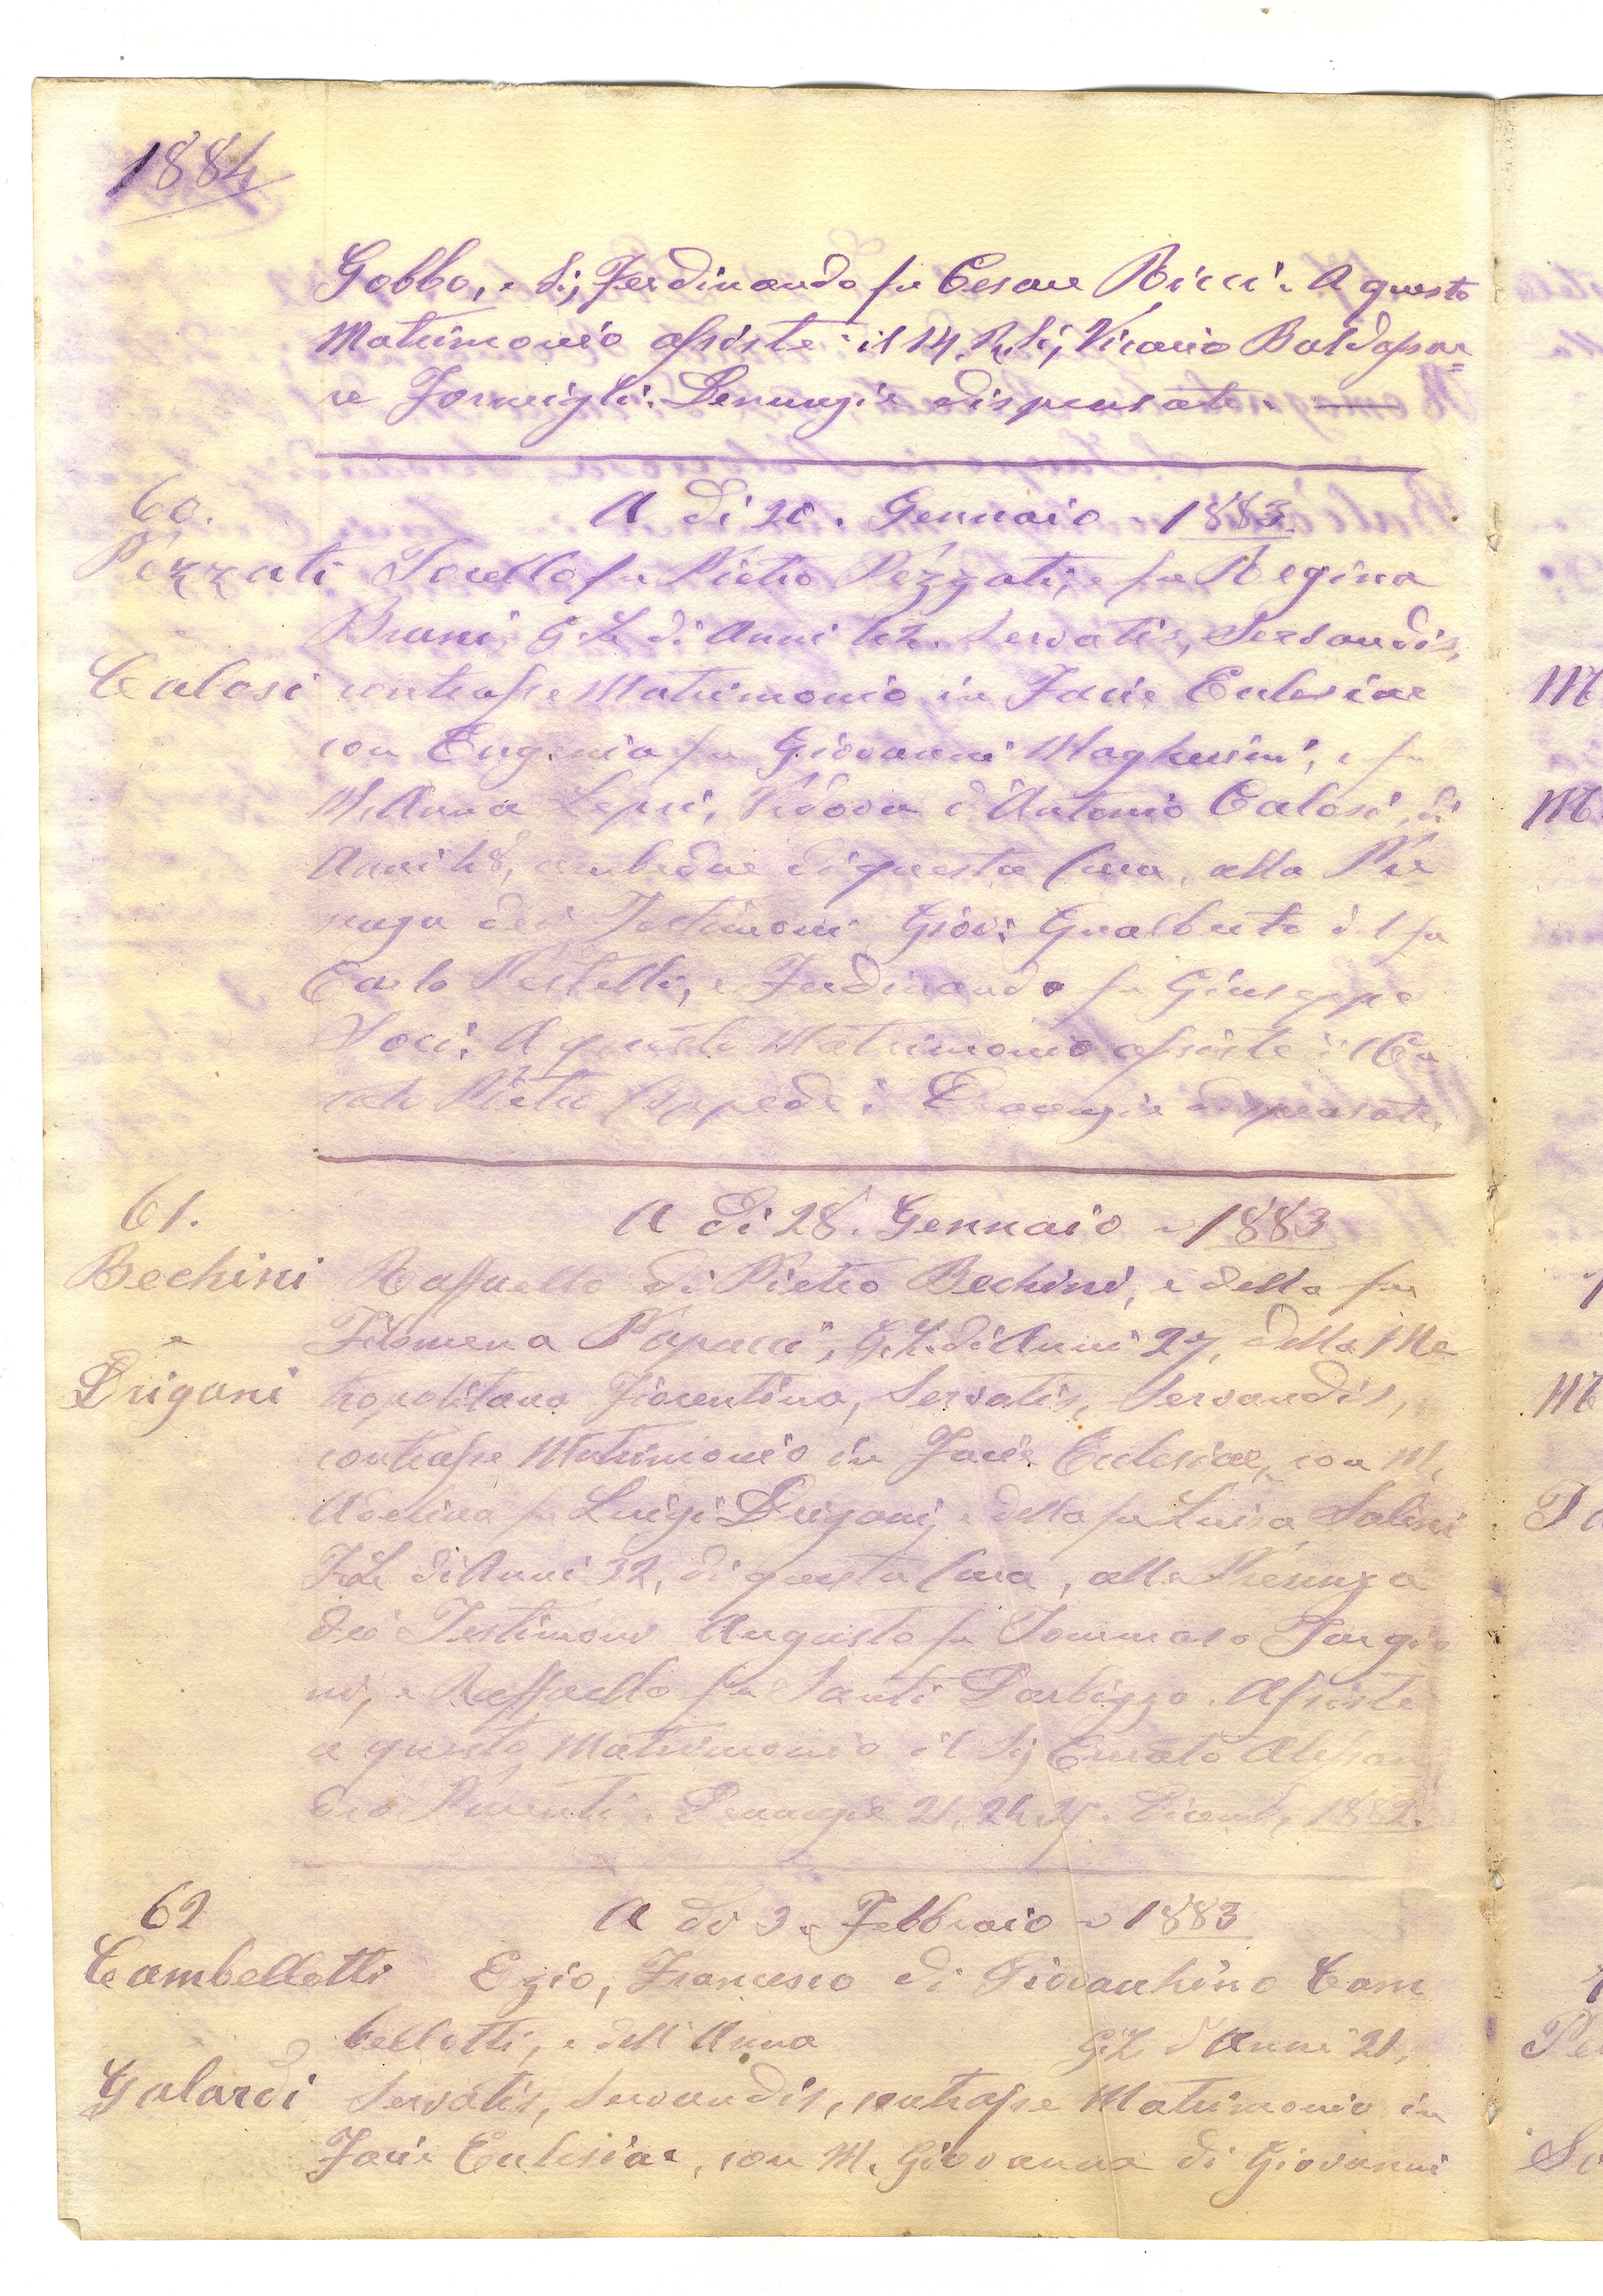 1884
Gobbo, e Sig Ferdinando fu Cesare Ricci. A questo
Matrimonio assiste il M. R. Sig Vicario Baldassar=
re Formigli. Denunzie dispensate.
60.
A di 20. Gennaio 1883.
Pezzati Torello fu Pietro Pezzati, e fu Regina
Bruni G. L. di Anni 42. Servatis, Servandis,
Calosi contrasse Matrimonio in Facie Ecclesiae
con Eugenia fu Giovanni Magherini, e fu
M. Anna Lepri, Vedova d'Antonio Calosi, di
Anni 48, ambedue di questa Cura, alla Pre
senza dei Testimoni Giov: Gualberto del fu
Carlo Pestelli, e Ferdinando fu Giuseppe
Soci. A questo Matrimonio assiste il Cu
rato Denunzie dispensate.
61.
A di 28. Gennaio 1883
Bechini Raffaello di Pietro Bechini, e della fu
e
Filomena Papucci, G. L. di Anni 27, della Me
Drigani tropolitana Fiorentina, Servatis, Servandis,
contrasse Matrimonio in Facie Ecclesiae, con M.
Adelina fu Luigi Drigani, e della fu Luisa Salini
F. L. di Anni 32, di questa Cura, alla Presenza
dei Testimoni Augusto fu Tommaso Targio
ni, e Raffaello fu Santi Barbizzo. Assiste
a questo Matrimonio il Sig Curato Alessan
dro Parenti. Denunzie 21, 24, 25. Dicemb, 1882.
62
A di 3. Febbraio 1883
Cambellotti Ezio, Francesco di Giovacchino Cam
e
bellotti, e dell'Anna G. L. d'Anni 21,
Galardi Servatis, Servandis, contrasse Matrimonio in
Facie Ecclesiae, con M. Giovanna di Giovanni